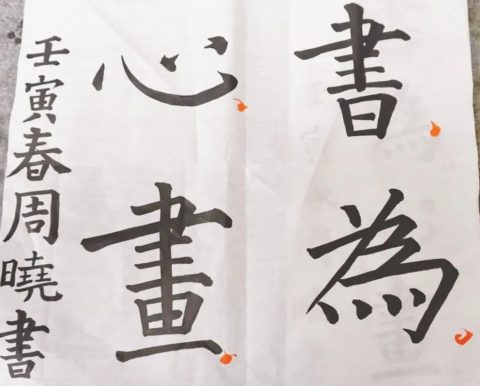 書為
心畫
壬寅春周曉書